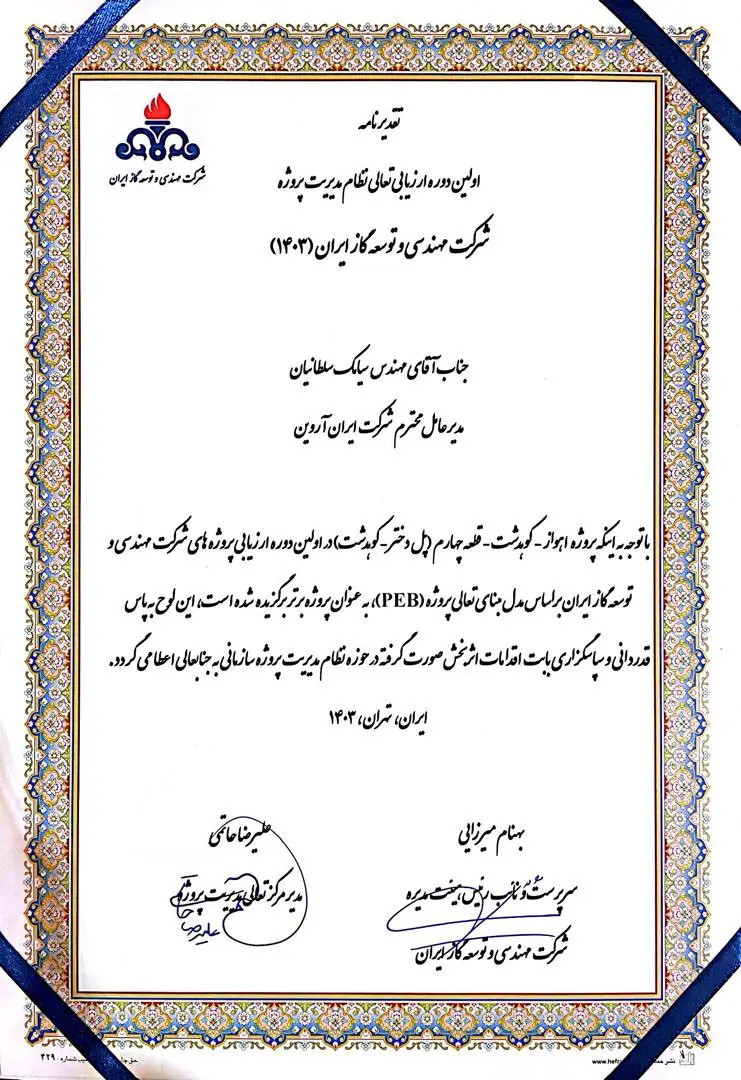 تقدیرنامه
شرکت مهندسی و توسعه گاز ایران
اولین دوره ارزیابی تعالی نظام مدیریت پروژه
شرکت مهندسی و توسعه گاز ایران (۱۴۰۳)
جناب آقای مهندس سیامک سلطانیان
مدیرعامل محترم شرکت ایران آروین
باتوجه به اینکه پروژه اهواز - کوهدشت - قطعه چهارم (پل دختر - کوهدشت) در اولین دوره ارزیابی پروژه های شرکت مهندسی و
توسعه گاز ایران بر اساس مدل مبنای تعالی پروژه (PEB)، به عنوان پروژه برتر برگزیده شده است، این لوح به پاس
قدردانی و سپاسگزاری بابت اقدامات اثربخش صورت گرفته در حوزه نظام مدیریت پروژه سازمانی به جنابعالی اعطا می گردد.
ایران، تهران، ۱۴۰۳
بهنام میرزایی
سرپرست و نائب رئیس هیئت مدیره
شرکت مهندسی و توسعه گاز ایران
علیرضا حاتمی
مدیر مرکز تعالی مدیریت پروژه
علیرضا
نشر
شماره: ۴۲۹